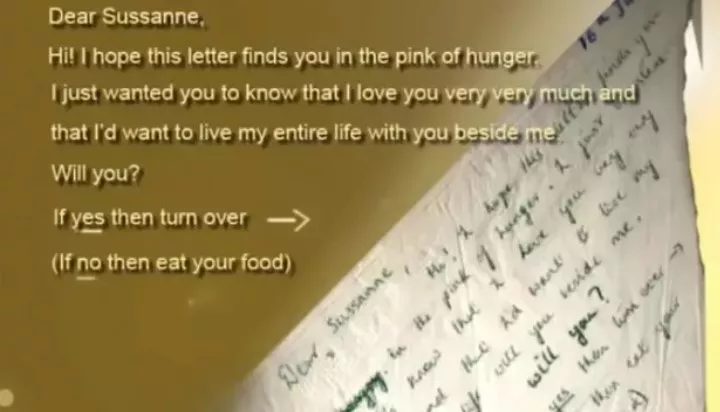 Dear Sussanne,
Hi! I hope this letter finds you in the pink of hunger.
I just wanted you to know that I love you very very much and
that I'd want to live my entire life with you beside me.
Will you?
If yes then turn over →
(If no then eat your food)
Dear Sussanne, Hi! I hope this letter finds you
in the pink of hunger. I just
know that I love you very very
and that I'd want to live my
life with you beside me.
Will you?
yes then turn over →
then eat your